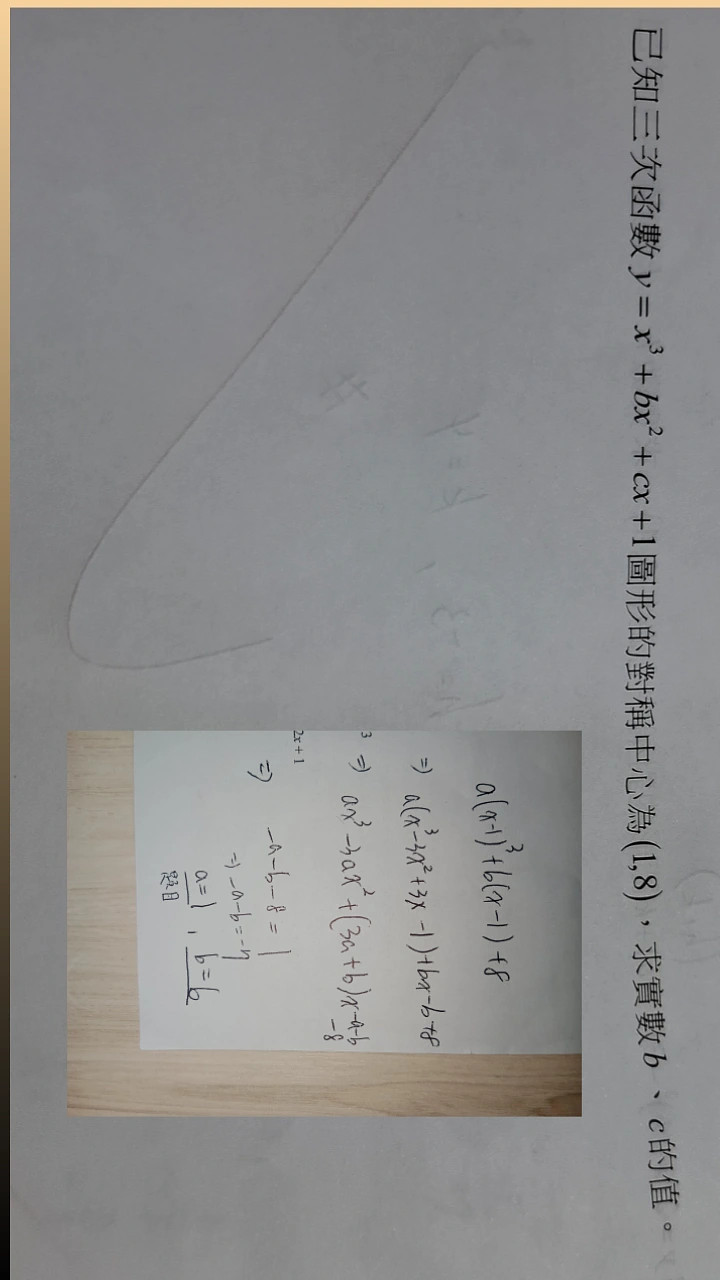 已知三次函數 y = x³ + bx² + cx + 1 圖形的對稱中心為(1,8)，求實數 b、c的值。
a(x-1)³+b(x-1)+8
⇒ a(x³-3x²+3x-1)+bx-b+8
³ ⇒ ax³-3ax²+(3a+b)x-a-b
-8
2x + 1
⇒ -a-b-8=1
⇒ -a-b=-7
a=1, b=6
題目